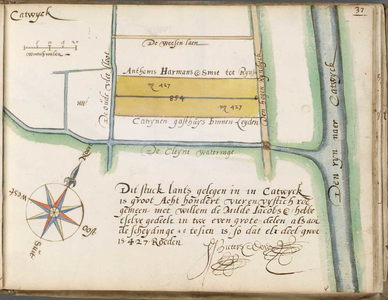 Catwyck
37
De weesen laen
Anthonis Harmans Smit tot Reyns
n 427
854
n 427
Catrynen gasthuys binnen Leyden
De oude vliet sloot
De Cleyne wateringe
Den ryn naer Catwyck
Noort
West
Oost
Suit
Dit stuck lants gelegen in in Catwyck
is groot Acht hondert vier en vyftich roe
gemeen met willem de Milde Jacobs hebbe
t selve gedeelt in twe even grote delen als aen
de scheydinge te sien is, so dat elx deel groot
is 427 Roeden